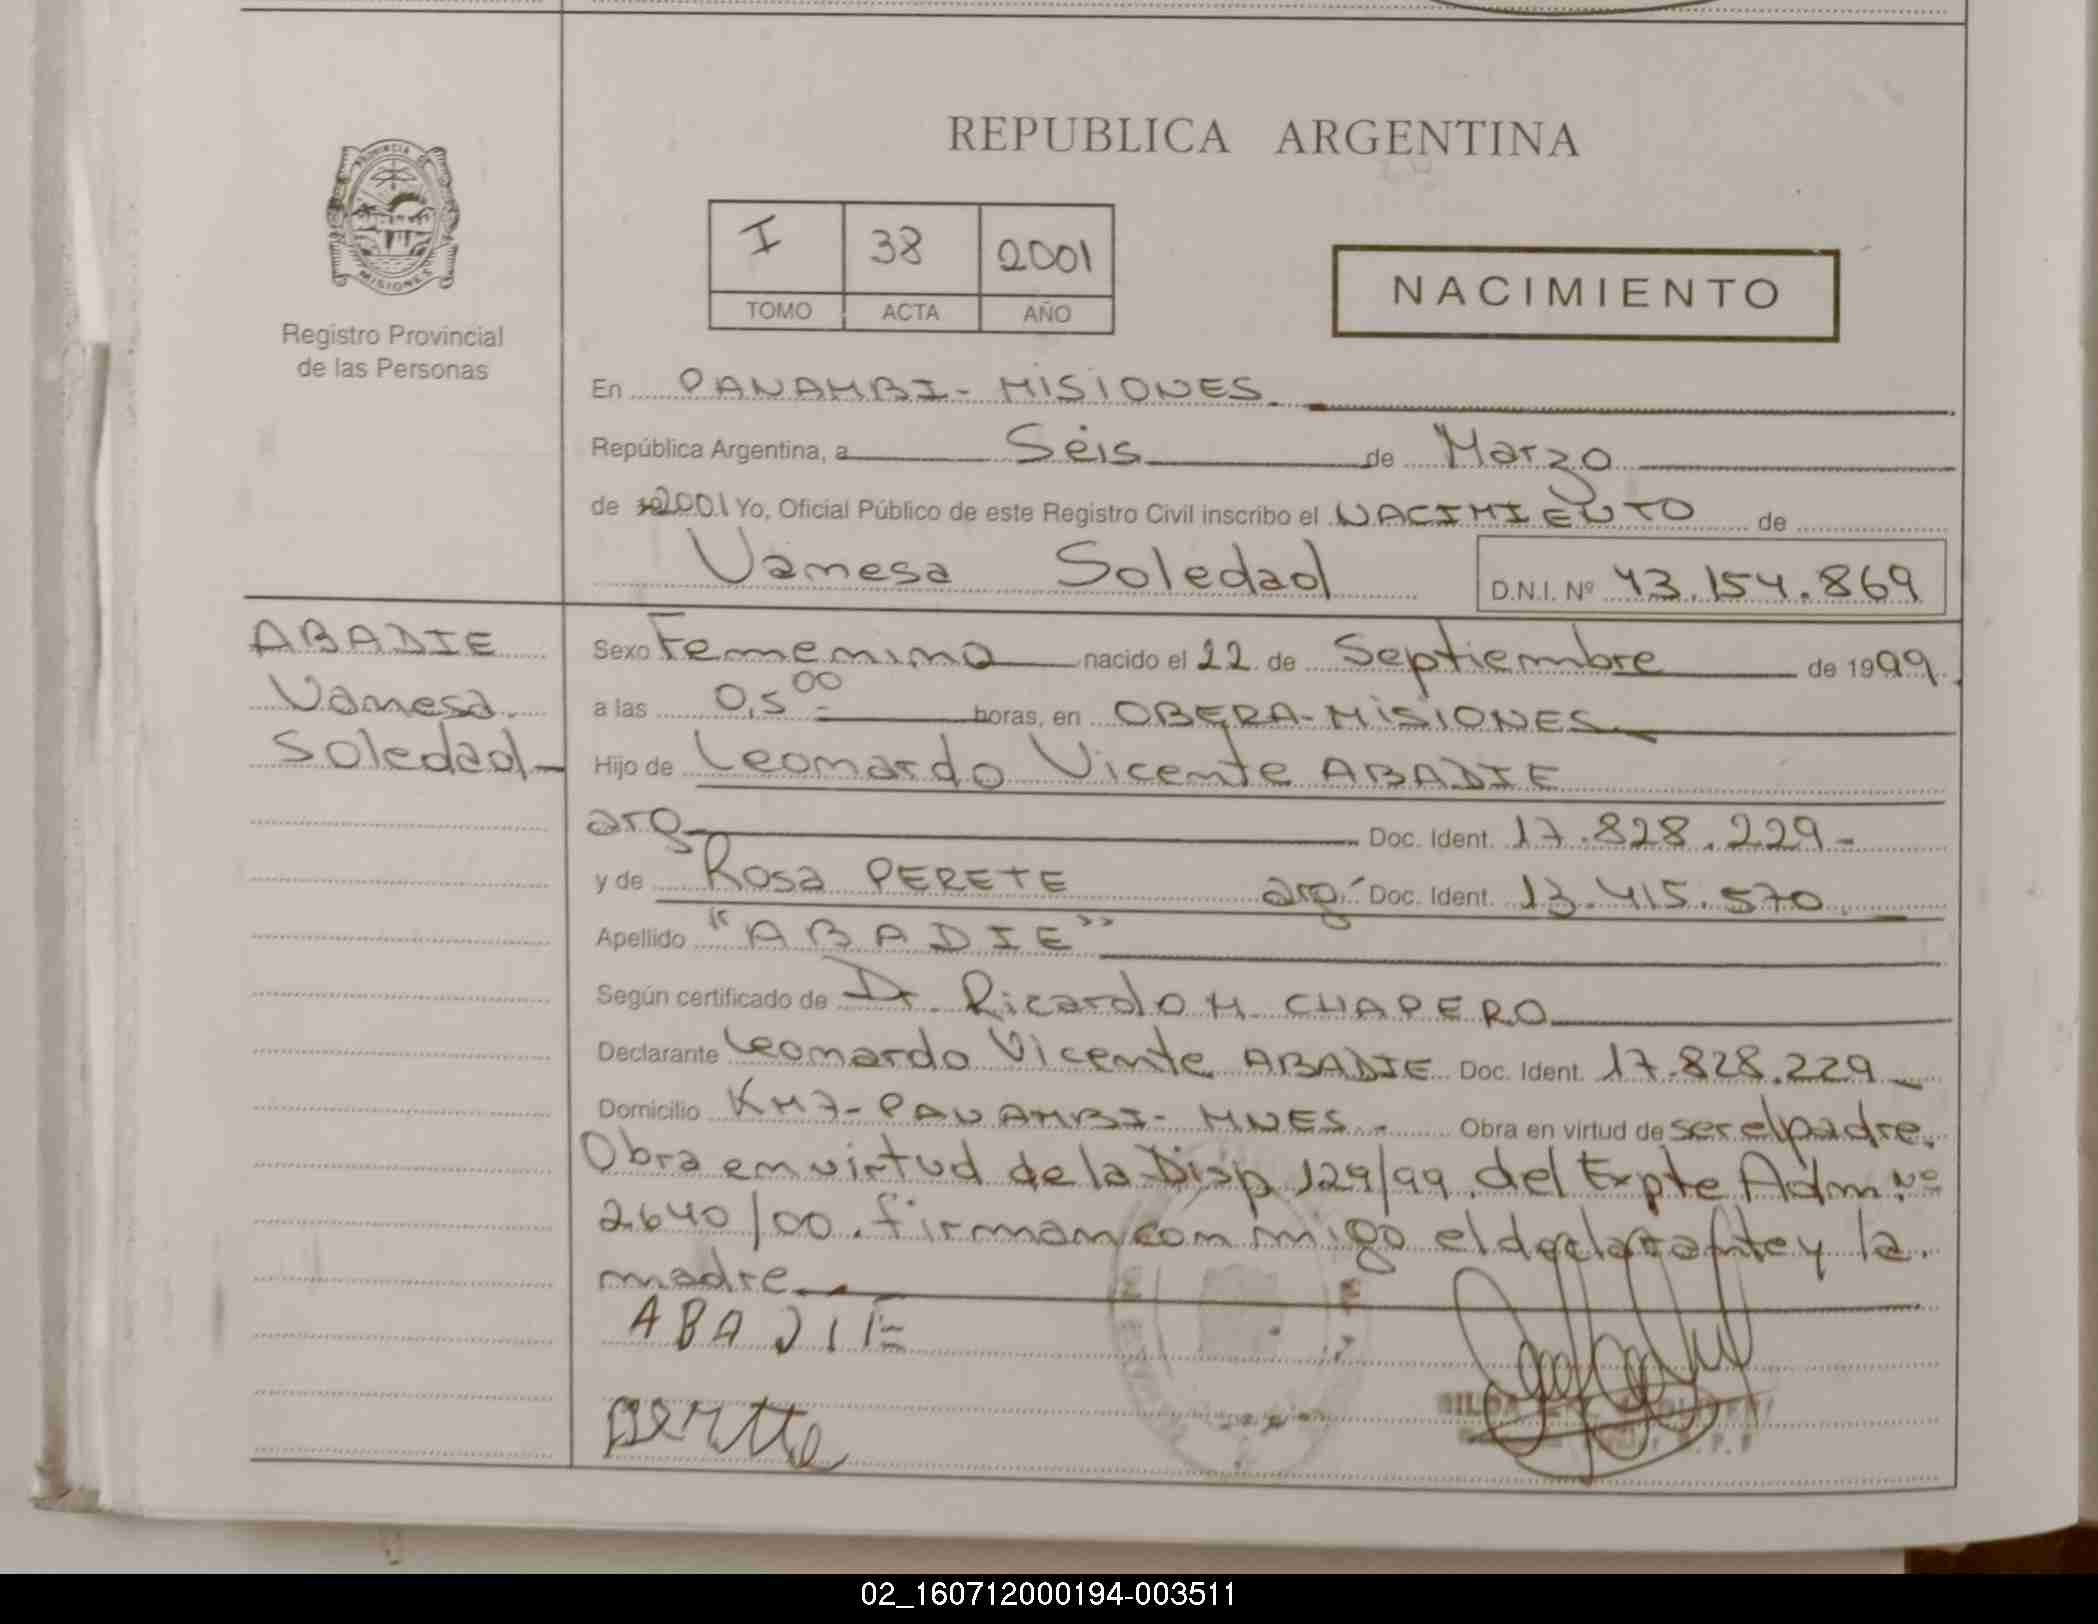 REPUBLICA ARGENTINA
PROVINCIA DE MISIONES
Registro Provincial
de las Personas
I 38 2001
TOMO ACTA AÑO
NACIMIENTO
En PANAMBI - MISIONES.
República Argentina, a Seis de Marzo
de 2001 Yo, Oficial Público de este Registro Civil inscribo el NACIMIENTO de
Vanesa Soledad D.N.I. Nº 43.154.869
ABADIE
Vanesa
Soledad
Sexo Femenino nacido el 22 de Septiembre de 1999.
a las 0,5⁰⁰ horas, en OBERA-MISIONES
Hijo de Leonardo Vicente ABADIE
arg Doc. Ident. 17.828.229-
y de Rosa PERETE arg. Doc. Ident. 13.415.570
Apellido "ABADIE"
Según certificado de Dr. Ricardo H. CHAPERO
Declarante Leonardo Vicente ABADIE Doc. Ident. 17.828.229
Domicilio KM7-PANAMBI-MNES. Obra en virtud de ser el padre.
Obra en virtud de la Disp 129/99. del Expte Adm. Nº
2640/00. firman conmigo el declarante y la
madre
ABADIE
02_160712000194-003511